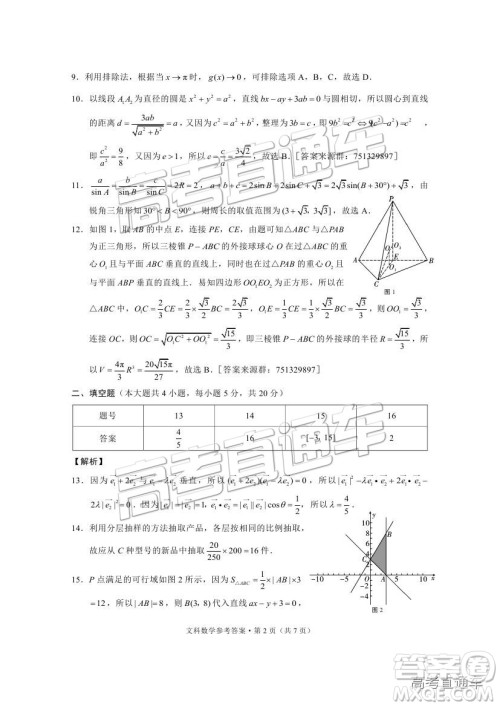 9. 利用排除法，根据当 x→π 时，g(x)→0，可排除选项 A，B，C，故选 D．
10. 以线段 A₁A₂ 为直径的圆是 x²+y²=a²，直线 bx−ay+3ab=0 与圆相切，所以圆心到直线
的距离 d=3ab/√(a²+b²)=a，又因为 c²=a²+b²，整理为 3b=c，即 9b²=c²
即 c²/a²=9/8，又因为 e>1，所以 e=c/a=3√2/4，故选 B．［答案来源群：751329897］
11. a/sin A=b/sin B=c/sin C=2R=2，a+b+c=2sin B+2sin C+√3=2√3sin(B+30°)+√3，由
锐角三角形知 30°<B<90°，则周长的取值范围是 (3+√3，3√3]，故选 C．
12. 如图 1，取 AB 的中点 E，连接 PE，CE，由题意可知△ABC 与△PAB
为正三角形，所以三棱锥 P−ABC 的外接球球心 O 在过△ABC 的重
心 O₁ 且与平面 ABC 垂直的直线上，同时也在过△PAB 的重心 O₂ 且
与平面 ABP 垂直的直线上．易知四边形 OO₁EO₂ 为正方形，所以在
△ABC 中，O₁C=2/3CE=2/3×√3/2BC=2√3/3，O₁E=1/3CE=1/3×√3/2BC=√3/3，则 OO₁=√3/3，
连接 OC，则 OC=√(O₁C²+OO₁²)=√15/3，即三棱锥 P−ABC 的外接球的半径 R=√15/3，所
以 V=4π/3R³=20√15π/27，故选 B．［答案来源群：751329897］
图 1
二、填空题（本大题共 4 小题，每小题 5 分，共 20 分）
题号 13 14 15 16
答案 4/5 16 [−3，15] 2
【解析】
13. 因为 e₁+2e₂ 与 e₁−λe₂ 垂直，所以 (e₁+2e₂)(e₁−λe₂)=0，所以 |e₁|²−λe₁e₂+2e₁e₂−
2λ|e₂|²=0．因为 |e₁|=|e₂|=1，e₁e₂=|e₁||e₂|cosθ=1/2，所以 λ=4/5．
14. 利用分层抽样的方法抽取产品，各层按相同的比例抽取，
故应从 C 种型号的新品中抽取 20/250×200=16 件．
15. P 点满足的可行域如图 2 所示，因为 S△ABC=1/2×|AB|×3
=12，所以 |AB|=8，则 B(3，8) 代入直线 ax−y+3=0，
图 2
文科数学参考答案·第 2 页（共 7 页）
高考直通车